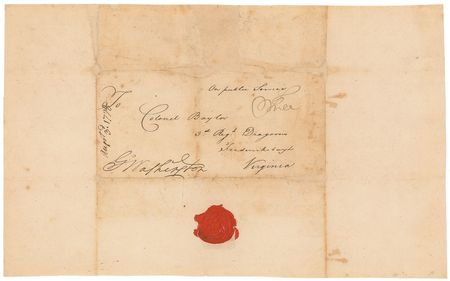 On public Service
To
Colonel Baylor
3d Regt. Dragoons
Fredericksburgh
Virginia
Go: Washington